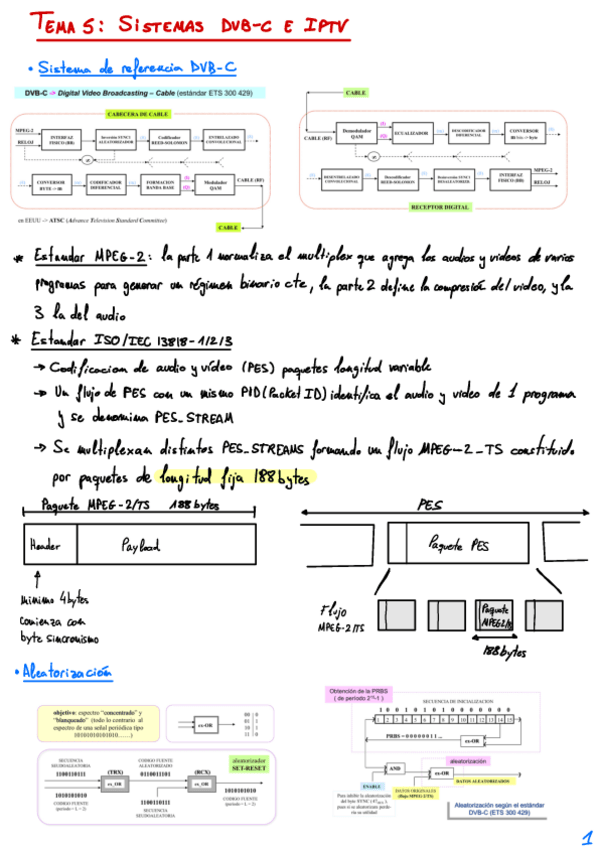 TEMA 5: SISTEMAS DVB-C E IPTV
• Sistema de referencia DVB-C
DVB-C -> Digital Video Broadcasting – Cable (estándar ETS 300 429)
CABECERA DE CABLE
MPEG-2
RELOJ
INTERFAZ FISICO (BB)
Inversión SYNC1 ALEATORIZADOR
Codificador REED-SOLOMON
ENTRELAZADO CONVOLUCIONAL
CONVERSOR BYTE -> 
CODIFICADOR DIFERENCIAL
FORMACION BANDA BASE
(I)
(Q)
Modulador QAM
CABLE (RF)
CABLE
en EEUU -> ATSC (Advance Television Standard Committee)
CABLE
CABLE (RF)
Demodulador QAM
(I)
(Q)
ECUALIZADOR
DECODIFICADOR DIFERENCIAL
CONVERSOR
DESENTRELAZADO CONVOLUCIONAL
Decodificador REED-SOLOMON
Desinversión SYNC1 DESALEATORIZ
INTERFAZ FISICO (BB)
MPEG-2
RELOJ
RECEPTOR DIGITAL
* Estandar MPEG-2: la parte 1 normaliza el multiplex que agrega los audios y videos de varios
programas para generar un régimen binario cte, la parte 2 define la compresión del video, y la
3 la del audio
* Estandar ISO/IEC 13818-1/2/3
→ Codificacion de audio y vídeo (PES) paquetes longitud variable
→ Un flujo de PES con un mismo PID (Packet ID) identifica el audio y video de 1 programa
y se denomina PES_STREAM
→ Se multiplexan distintos PES_STREAMS formando un flujo MPEG-2_TS constituido
por paquetes de longitud fija 188 bytes
Paquete MPEG-2/TS 188 bytes
Header
Payload
minimo 4 bytes
comienza con
byte sincronismo
PES
Paquete PES
Flujo
MPEG-2/TS
Paquete
MPEG2/TS
188 bytes
• Aleatorización
objetivo: espectro "concentrado" y
"blanqueado" (todo lo contrario al
espectro de una señal periódica tipo
10101010101010……)
ex-OR
00 0
01 1
10 1
11 0
aleatorizador
SET-RESET
SECUENCIA
SEUDOALEATORIA
1100110111
(TRX)
ex_OR
1010101010
CODIGO FUENTE
(periodo = L = 2)
CODIGO FUENTE
ALEATORIZADO
0110011101
(RCX)
ex_OR
1100110111
SECUENCIA
SEUDOALEATORIA
1010101010
CODIGO FUENTE
(periodo = L = 2)
Obtención de la PRBS
( de periodo 2^15-1 )
SECUENCIA DE INICIALIZACION
1 0 0 1 0 1 0 1 0 0 0 0 0 0 0
1 2 3 4 5 6 7 8 9 10 11 12 13 14 15
PRBS = 0 0 0 0 0 0 1 1 ...
ex-OR
AND
aleatorización
ex-OR
DATOS ALEATORIZADOS
ENABLE
DATOS ORIGINALES
(flujo MPEG2/TS)
Para inhibir la aleatorización
Aleatorización según el estándar
DVB-C (ETS 300 429)
1